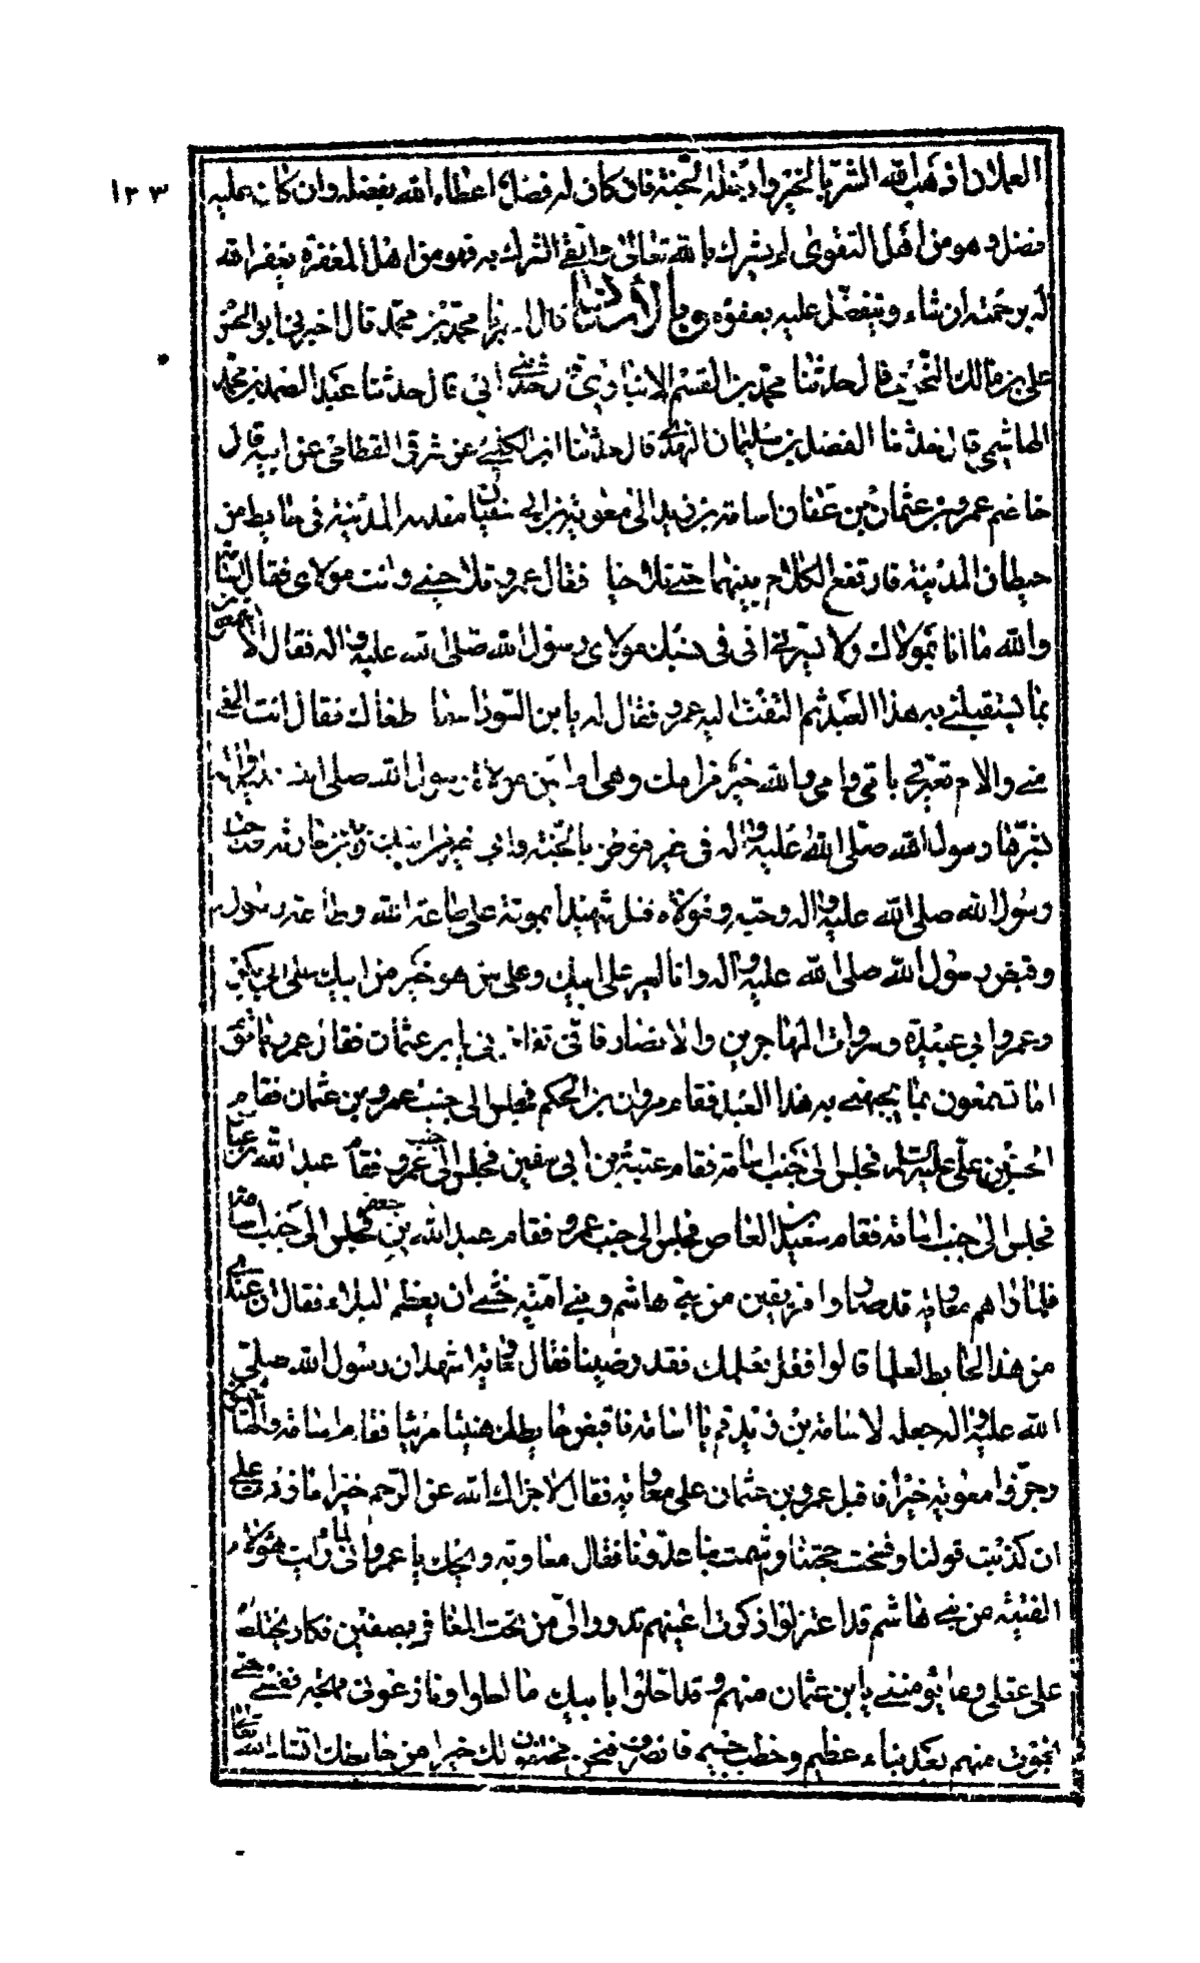 ١٢٣
العدل ان اذهب الله الشر بالخير وادخله الجنة فان كان له فضل اعطاه الله بفضله وان كان عليه
فضل وهو من اهل التقوى لم يشرك بالله تعالى واتقى الشرك به فهو من اهل المغفرة يغفر الله
له برحمته ان شاء ويتفضل عليه بعفوه وبالاسناد قال اخبرنا محمد بن محمد قال اخبرني ابو الحسن
علي بن مالك النحوي قال حدثنا محمد بن القسم الانباري قال حدثني ابي قال حدثنا عبد الصمد بن محمد
الهاشمي قال حدثنا الفضل بن سليمان النهدي قال حدثنا ابن الكلبي عن شرقي القطامي عن ابيه قال
خاصم عمرو بن عثمان بن عفان اسامة بن زيد الى معوية بن ابي سفيان مقدمه المدينة في حايط من
حيطان المدينة فارتفع الكلام بينهما حتى تلاحيا فقال عمرو تلاحيني وانت مولاي فقال اسامة
والله ما انا بمولاك ولا يسرني اني في نسبك مولاي رسول الله صلى الله عليه واله فقال الا تسمعون
بما يستقبلني به هذا العبد ثم التفت اليه عمرو فقال له يا بن السوداء ما اطغاك فقال انت اطغى
مني والام تعيرني بامي وامي والله خير من امك وهي ام ايمن مولاة رسول الله صلى الله عليه واله
بشرها رسول الله صلى الله عليه واله في غير موطن بالجنة وابي خير من ابيك زيد بن حارثة صاحب
رسول الله صلى الله عليه واله وحبه ومولاه قتل شهيدا بموتة على طاعة الله وطاعة رسوله
وقبض رسول الله صلى الله عليه واله وانا امير على ابيك وعلى من هو خير من ابيك على ابي بكر
وعمر وابي عبيدة وسروات المهاجرين والانصار فانى تفاخرني يا بن عثمان فقال عمرو يا قوم
اما تسمعون بما يجبهني به هذا العبد فقام مروان بن الحكم فجلس الى جنب عمرو بن عثمان فقام
الحسن بن علي عليه السلام فجلس الى جنب اسامة فقام عتبة بن ابي سفين فجلس الى جنب عمرو فقام عبد الله بن عباس
فجلس الى جنب اسامة فقام سعيد بن العاص فجلس الى جنب عمرو فقام عبد الله بن جعفر فجلس الى جنب اسامة
فلما راهم معاوية قد صاروا فريقين من بني هاشم وبني امية خشي ان يعظم البلاء فقال ان عندي
من هذا الحايط لعلما قالوا فقل بعلمك فقد رضينا فقال معاوية اشهد ان رسول الله صلى
الله عليه واله جعله لاسامة بن زيد قم يا اسامة فاقبض حايطك هنيئا مريئا فقام اسامة والهاشميون
وجزوا معوية خيرا فاقبل عمرو بن عثمان على معاوية فقال لا جزاك الله عن الرحم خيرا ما زدت على
ان كذبت قولنا وفسخت حجتنا وشمت بنا عدونا فقال معاوية ويحك يا عمرو اني لما رايت هؤلاء
الفتية من بني هاشم قد اعتزلوا ذكرت اعينهم تدور الي من تحت المغافر بصفين فكاد يختلط
علي عقلي وما يؤمنني يا بن عثمان منهم وقد احلوا بابيك ما احلوا ونازعوني مهجة نفسي حتى
نجوت منهم بعد نباء عظيم وخطب جسيم فانصرف فنحن مخلفون لك خيرا من حايطك انشاء الله تعالى